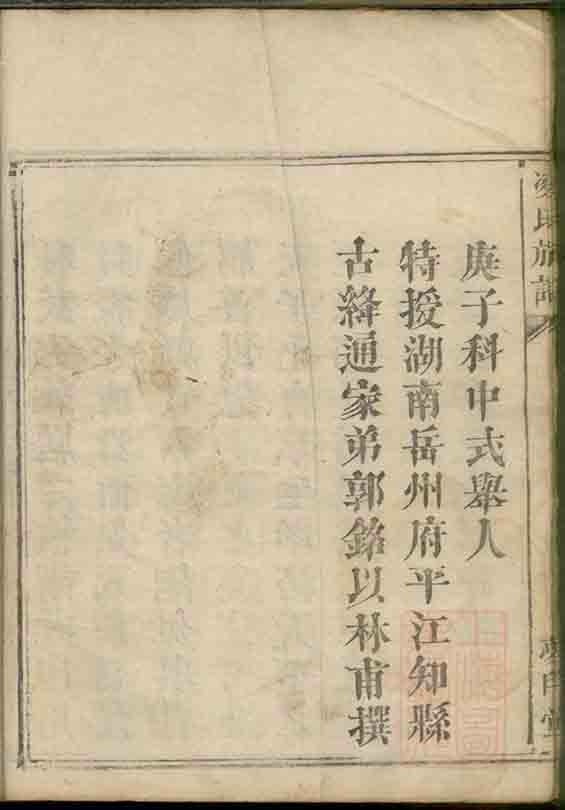 庚子科中式舉人
特授湖南岳州府平江知縣
古絳通家弟郭銘以林甫撰
氏族譜
堂